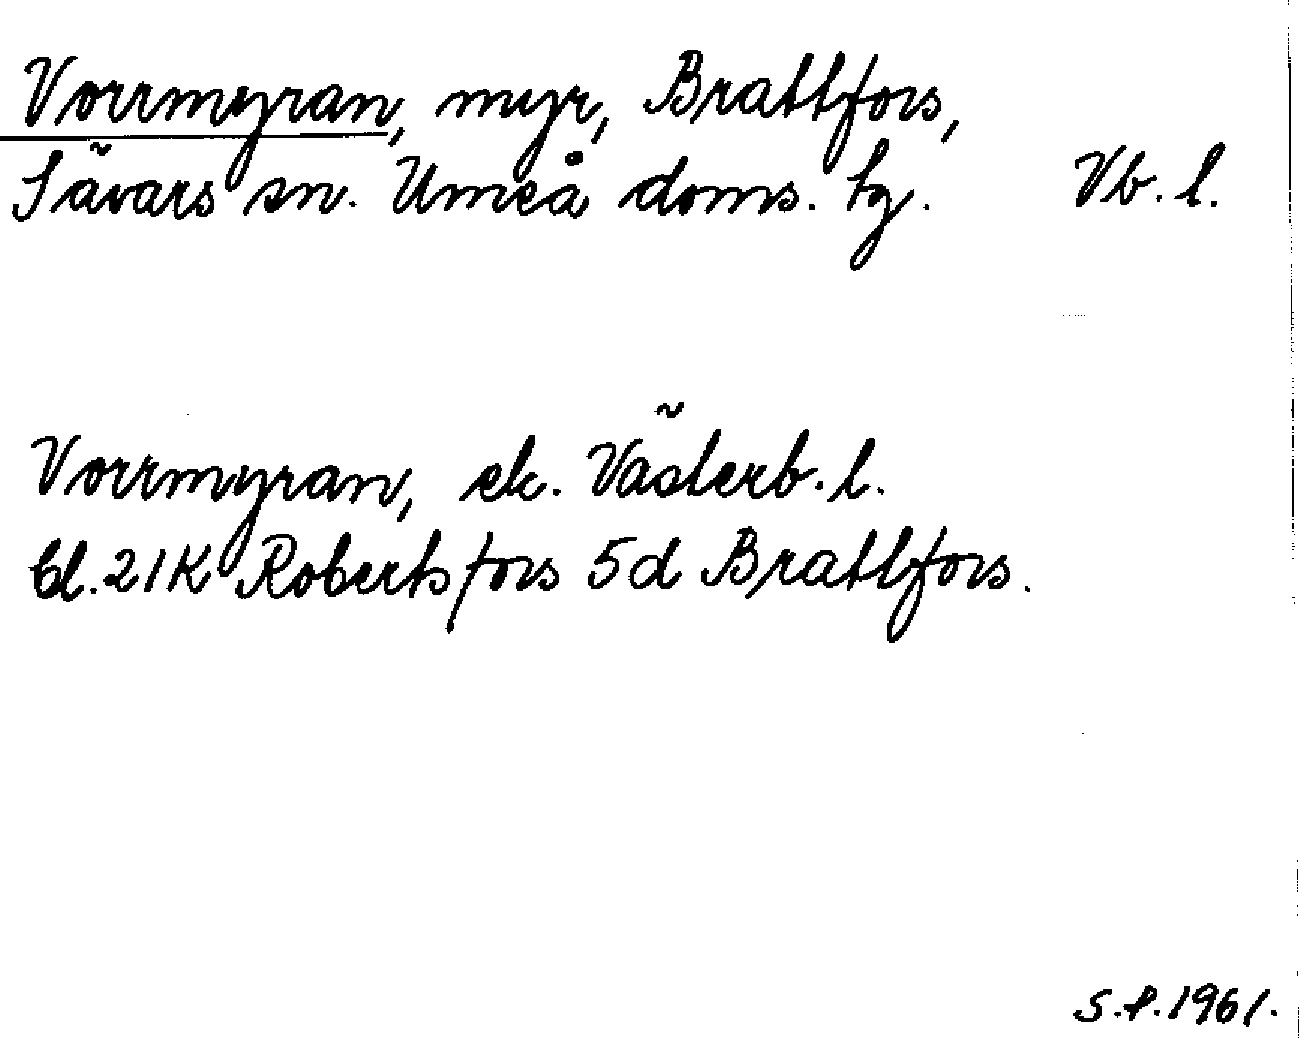 Vorrmyran, myr, Brattfors,
Sävars sn. Umeå doms. tg. Vb. l.
Vorrmyran, ek. Västerb. l.
bl. 21K Robertsfors 5d Brattfors.
S.f. 1961.